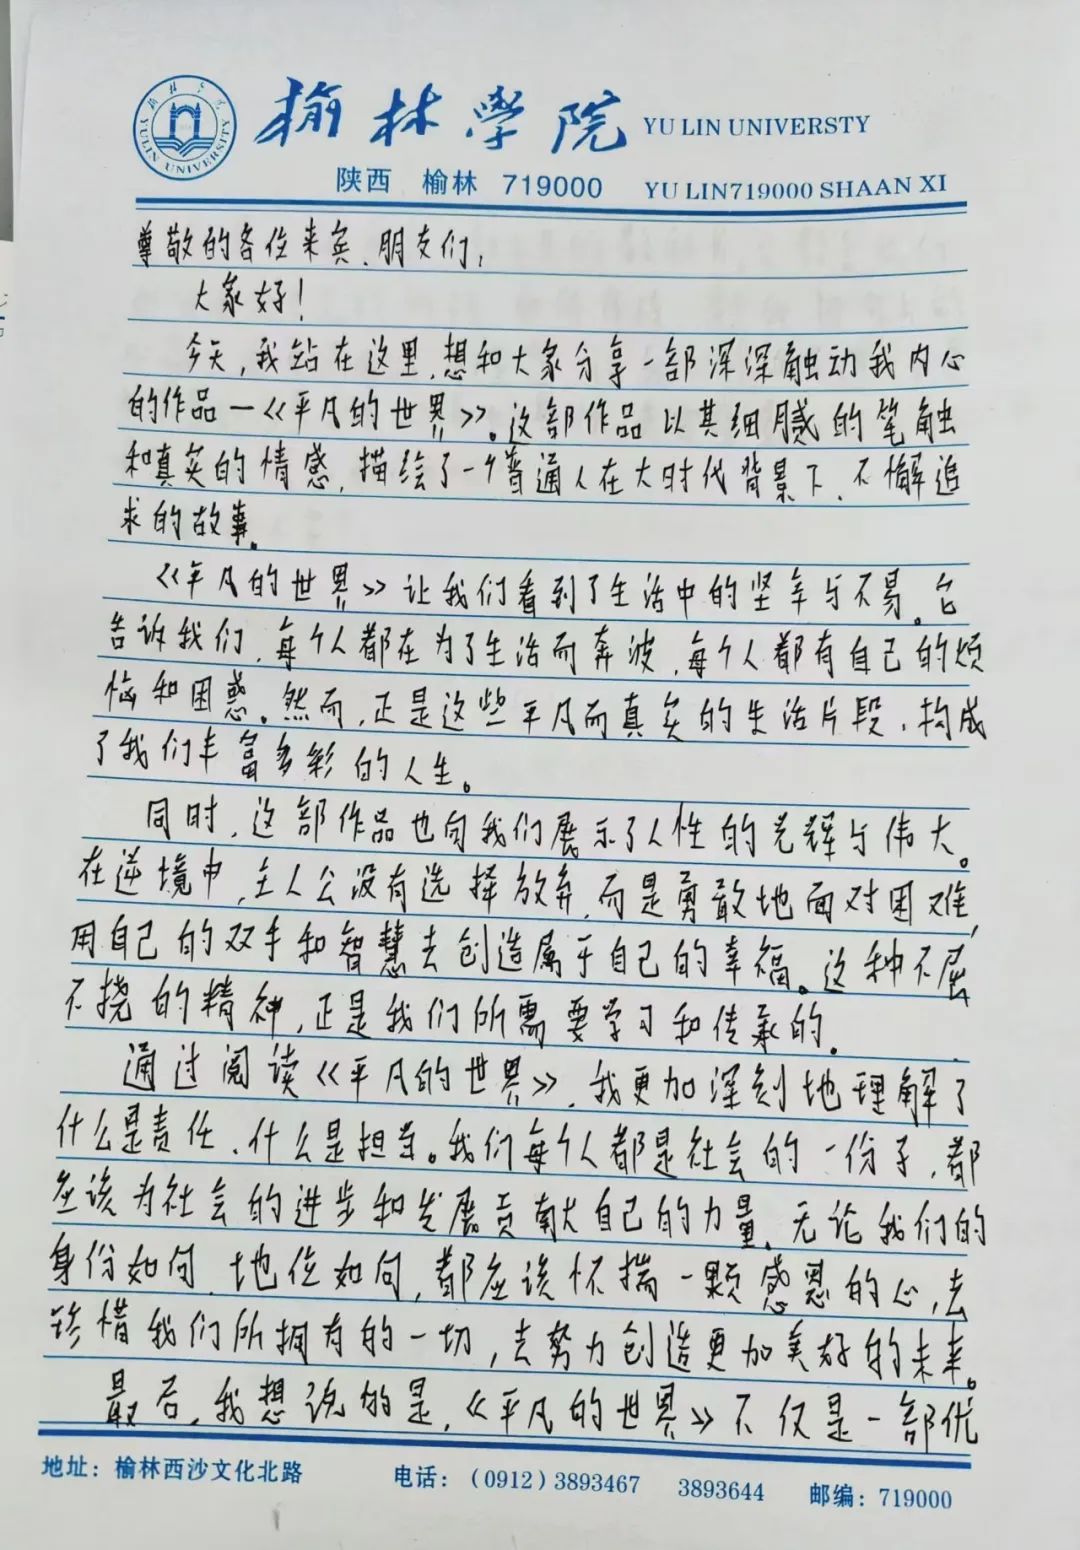 榆林学院 YU LIN UNIVERSTY
YULIN UNIVERSITY
陕西 榆林 719000 YU LIN719000 SHAAN XI
尊敬的各位来宾、朋友们:
大家好!
今天,我站在这里,想和大家分享一部深深触动我内心
的作品—《平凡的世界》。这部作品以其细腻的笔触
和真实的情感,描绘了一个普通人在大时代背景下、不懈追
求的故事。
《平凡的世界》让我们看到了生活中的坚辛与不易。它
告诉我们,每个人都在为了生活而奔波,每个人都有自己的烦
恼和困惑。然而,正是这些平凡而真实的生活片段,构成
了我们丰富多彩的人生。
同时,这部作品也向我们展示了人性的光辉与伟大。
在逆境中,主人公没有选择放弃,而是勇敢地面对困难,
用自己的双手和智慧去创造属于自己的幸福。这种不屈
不挠的精神,正是我们所需要学习和传承的.
通过阅读《平凡的世界》,我更加深刻地理解了
什么是责任、什么是担当。我们每个人都是社会的一份子,都
应该为社会的进步和发展贡献自己的力量。无论我们的
身份如何,地位如何,都应该怀揣一颗感恩的心,去
珍惜我们所拥有的一切,去努力创造更加美好的未来。
最后,我想说的是,《平凡的世界》不仅是一部优
地址:榆林西沙文化北路 电话:(0912)3893467 3893644 邮编:719000